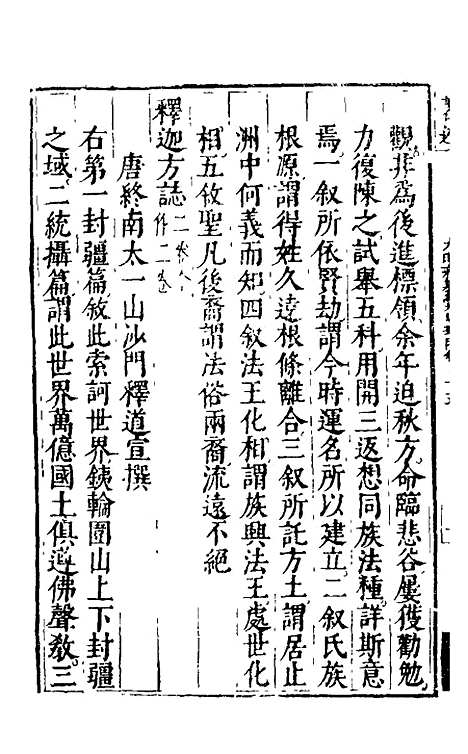 觀并為後進標領余年迫秋方命臨悲谷屢獲勸勉
力復陳之試舉五科用開三返想同族法種詳斯意
焉一叙所依賢劫謂今時運名所以建立二叙氏族
根源謂得姓久遠根條離合三叙所託方土謂居止
洲中何義而知四叙法王化相謂族興法王處世化
相五敘聖凡後裔謂法俗兩裔流遠不絕
釋迦方誌二卷八
作二卷
唐終南太一山沙門釋道宣撰
右第一封疆篇敘此索訶世界銕輪圍山上下封疆
之域二統攝篇謂此世界萬億國土俱遵佛聲教三